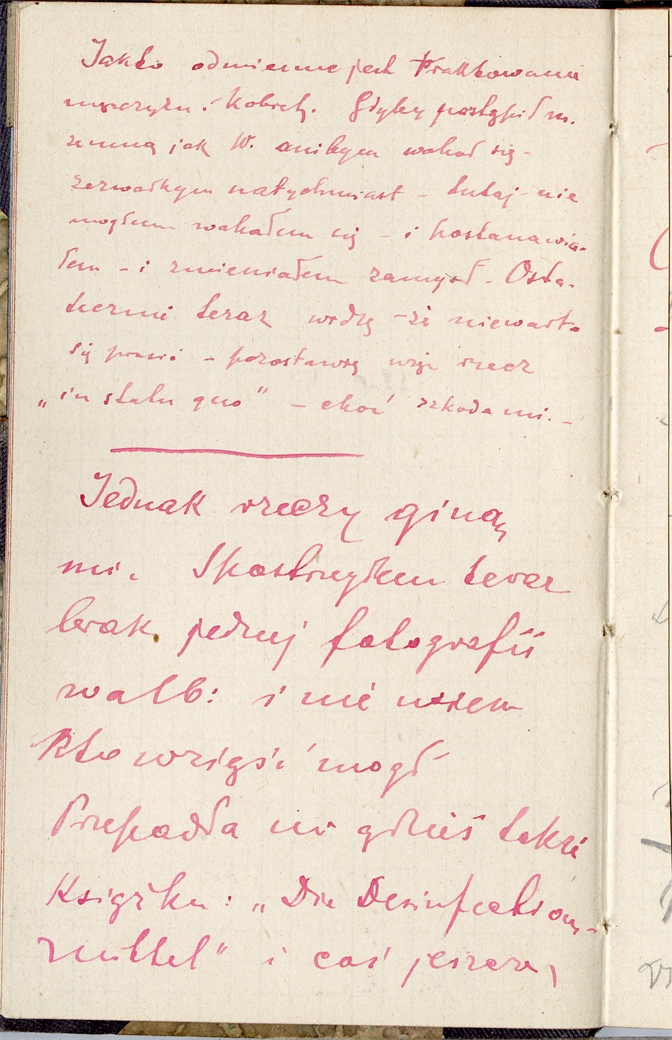 Jakto odmienne jest traktowanie
mężczyzn i kobiet. Gdyby postąpił m.
zemną jak W. anibym wahał się –
zerwałbym natychmiast – tutaj nie
mogłem wahałem się – i postanawia-
łem – i zmieniałem zamysł. Osta-
tecznie teraz widzę – że niewarto
się – pozostawię rzecz
„in statu quo” – choć szkoda mi. –
Jednak rzeczy giną
mi. Spostrzegłem teraz
brak jednej fotografii
w alb: i nie wiem
kto wziąść mógł
Przepadła mi gdzieś także
książka: „Die Desinfections-
mittel” i coś jeszcze,